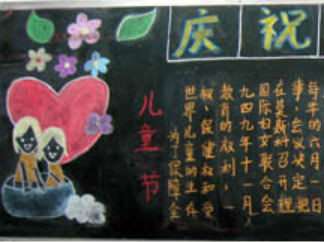 庆祝
儿童节
为了保障全
世界儿童的生存
权、保健权和受
教育的权利,一
九四九年十一月
国际妇女联合会
在莫斯科召开理
事,会议决定把
每年的六月一日